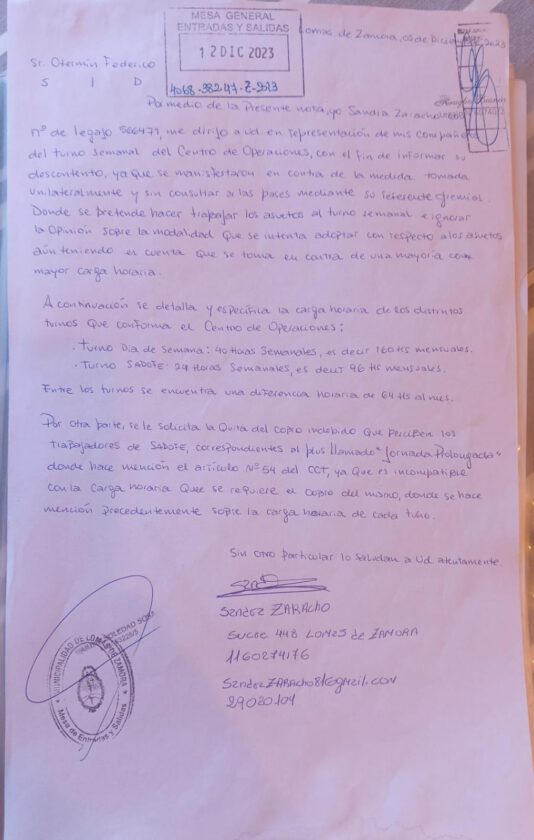 MESA GENERAL
ENTRADAS Y SALIDAS
12 DIC 2023
4068-38247-Z-2023
Lomas de Zamora, de Diciembre 2023
Sr. Otermin Federico
S I D
Por medio de la Presente nota, yo Sandra Zaracho
nº de legajo 566477, me dirijo a ud en representación de mis compañeros
del turno semanal del Centro de Operaciones, con el fin de informar su
descontento, ya Que se manifestaron en contra de la medida tomada
unilateralmente y sin consultar a las bases mediante su referente gremial.
Donde se pretende hacer trabajar los asuetos al turno semanal e ignorar
la Opinión sobre la modalidad Que se intenta adoptar con respecto a los asuetos
aún teniendo en cuenta Que se toma en contra de una mayoría con
mayor carga horaria.
A continuación se detalla y especifica la carga horaria de los distintos
turnos Que conforma el Centro de Operaciones:
· Turno Dia de Semana: 40 Horas Semanales, es decir 160 Hs mensuales.
· Turno SADOFE: 24 Horas Semanales, es decir 96 Hs mensuales.
Entre los turnos se encuentra una diferencia horaria de 64 Hs al mes.
Por otra parte, se le solicita la Quita del cobro indebido Que perciben los
trabajadores de SADOFE, correspondientes al plus llamado "Jornada Prolongada"
donde hace mención el artículo Nº 54 del CCT, ya Que es incompatible
con la carga horaria Que se requiere el cobro del mismo, donde se hace
mención precedentemente sobre la carga horaria de cada turno.
Sin otro particular lo saludan a Ud. atentamente.
Sandra ZARACHO
Sucre 448 Lomas de ZAMORA
1160274176
SandraZaracho81@gmail.com
29020104
MUNICIPALIDAD DE LOMAS DE ZAMORA
Mesa de Entradas y Salidas
SOLEDAD SOSA